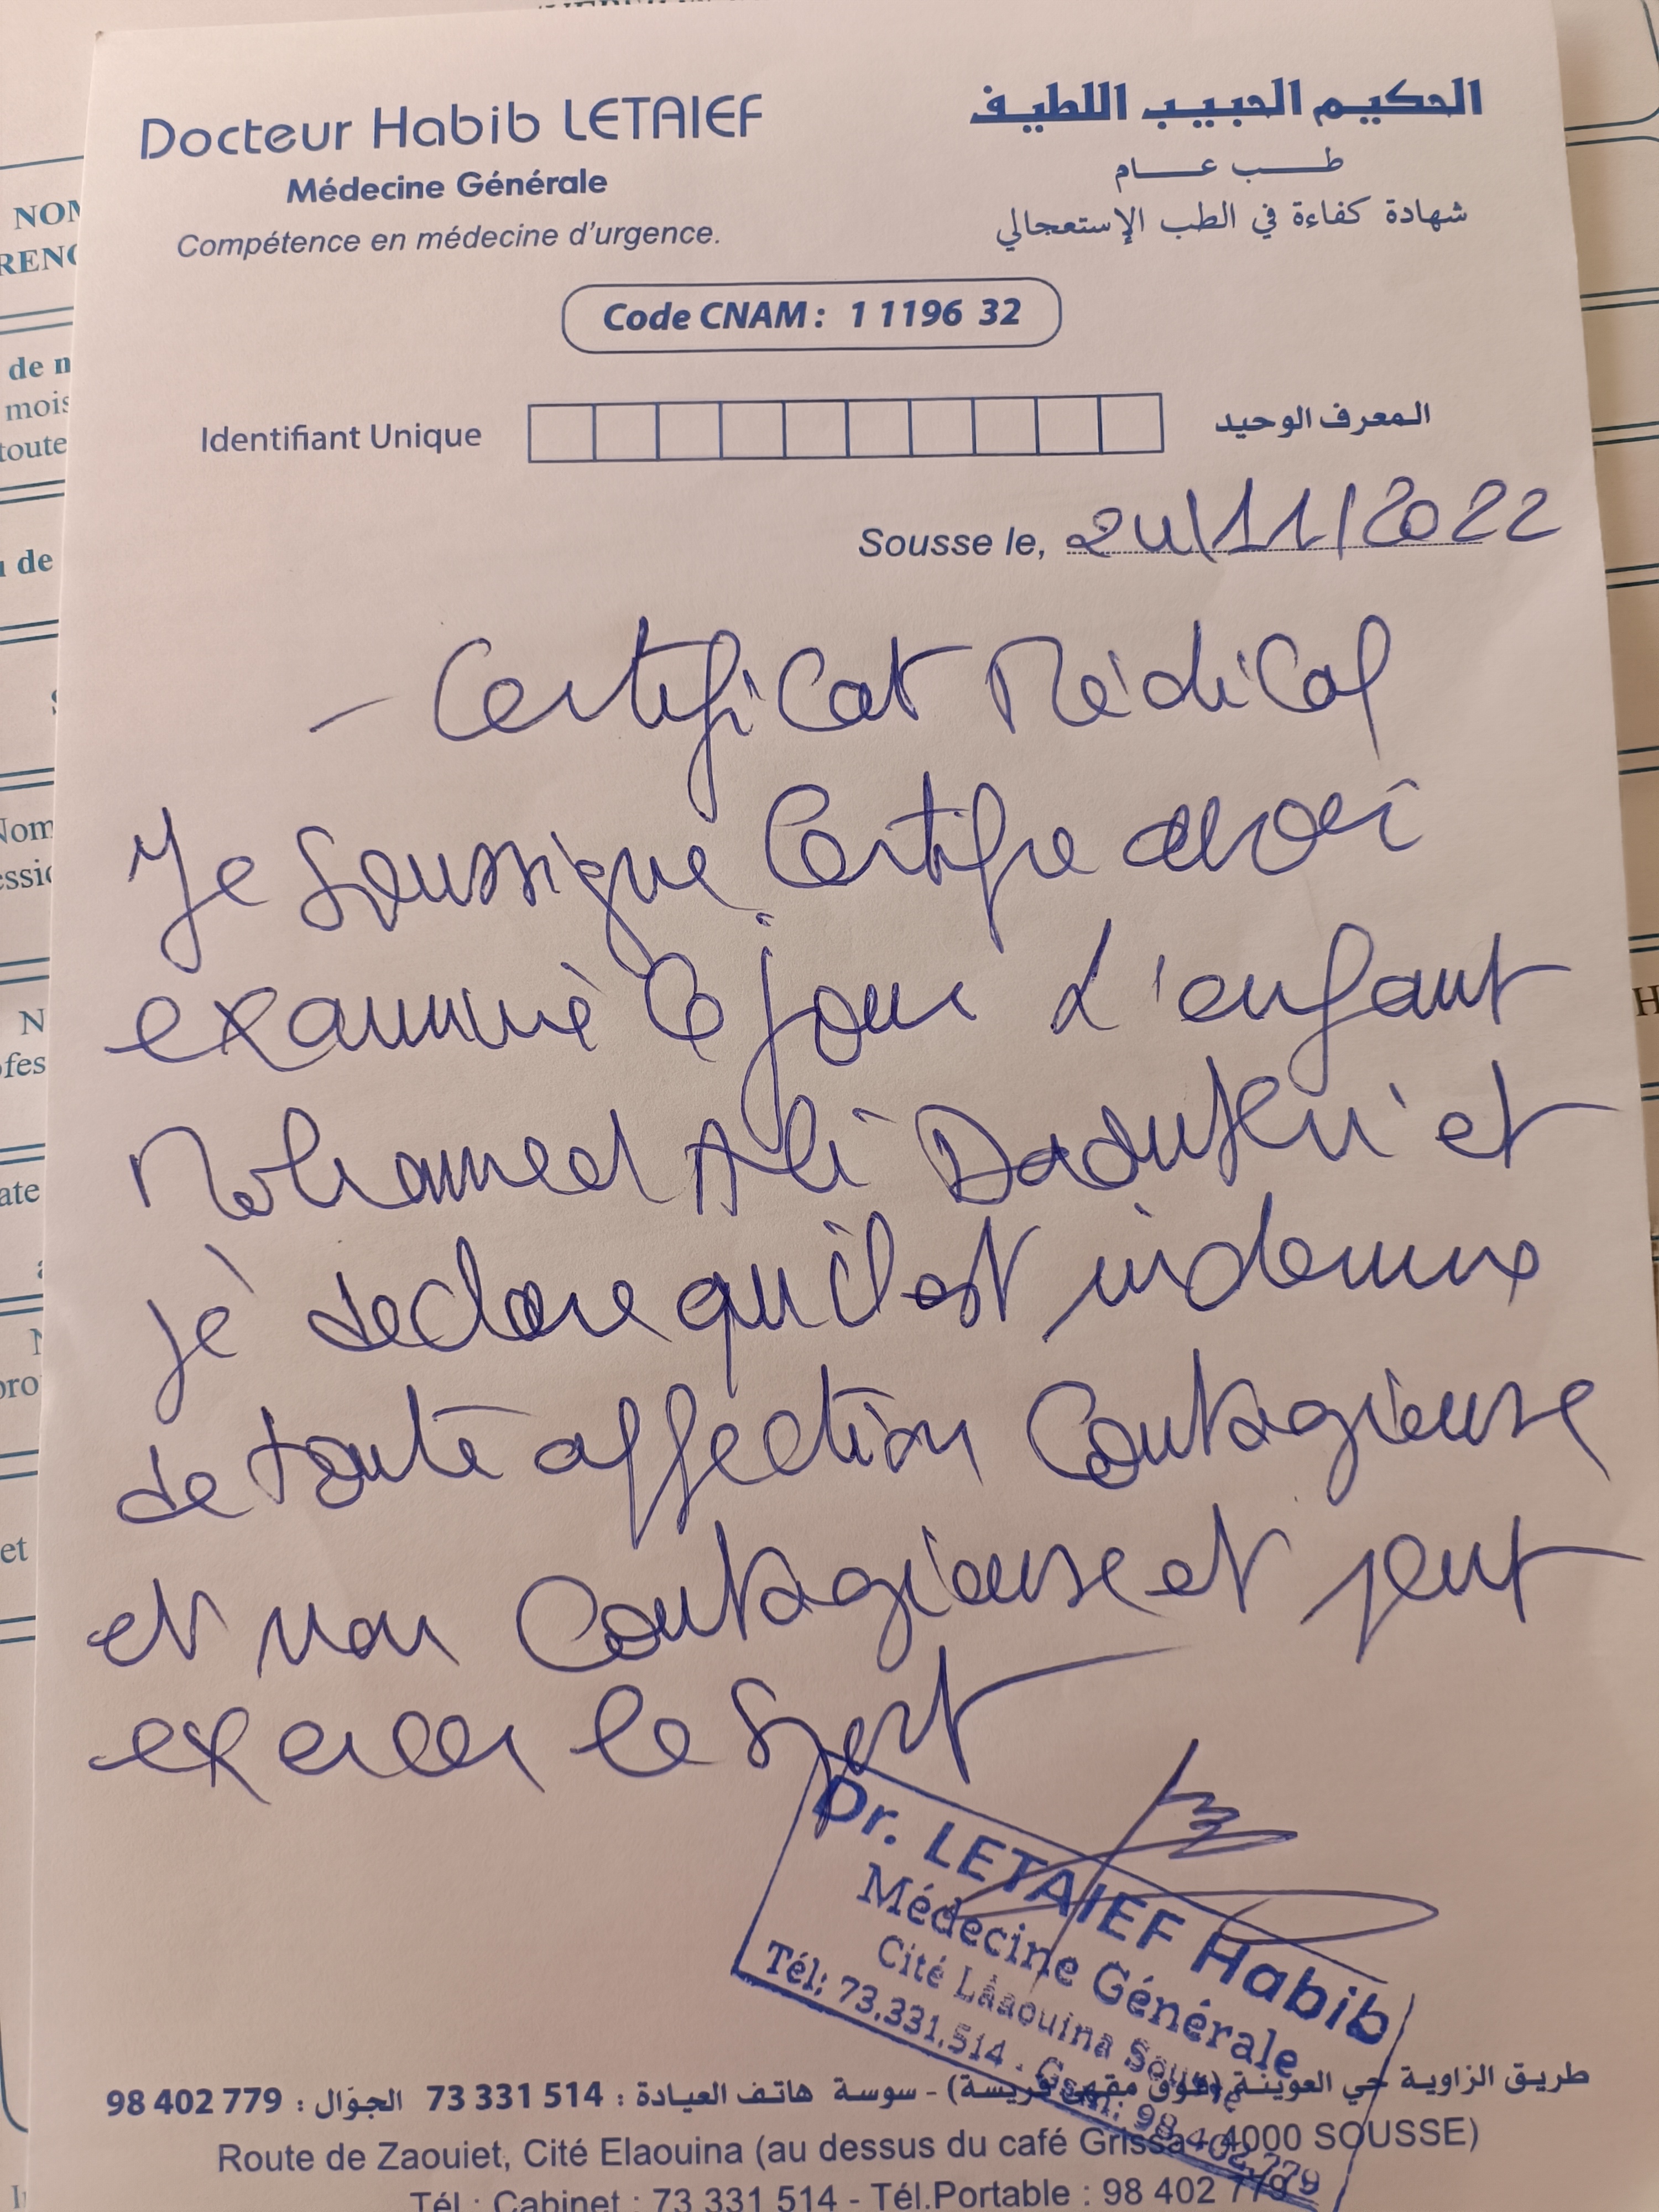 Docteur Habib LETAIEF
Médecine Générale
Compétence en médecine d'urgence.
الحكيم الحبيب اللطيف
طب عام
شهادة كفاءة في الطب الإستعجالي
Code CNAM : 1 1196 32
Identifiant Unique المعرف الوحيد
Sousse le, 24/11/2022
- Certificat Médical
Je soussigné certifie avoir
examiné ce jour l'enfant
Mohamed Ali et
je déclare qu'il est indemne
de toute affection contagieuse
et non contagieuse et peut
exercer le sport
Dr. LETAIEF Habib
Médecine Générale
Cité Lâaouina Sousse
Tél: 73.331.514 - Gsm: 98.402.779
طريق الزاوية حي العوينة (فوق مقهى قريسة) - سوسة هاتف العيادة : 73 331 514 الجوّال : 98 402 779
Route de Zaouiet, Cité Elaouina (au dessus du café Grissa - 4000 SOUSSE)
Tél : Cabinet : 73 331 514 - Tél.Portable : 98 402 779
NOM
de n
mois
toute
de
Nom
ate
et